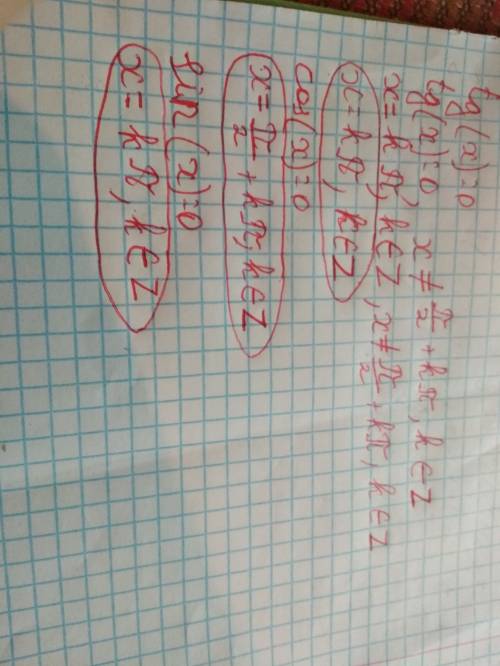 tg(x)=0
tg(x)=0 x ≠ π/2 + kπ, k ∈ Z
x = kπ, k ∈ Z, x ≠ π/2 + kπ, k ∈ Z
x = kπ, k ∈ Z
cos(x)=0
x = π/2 + kπ, k ∈ Z
sin(x)=0
x = kπ, k ∈ Z